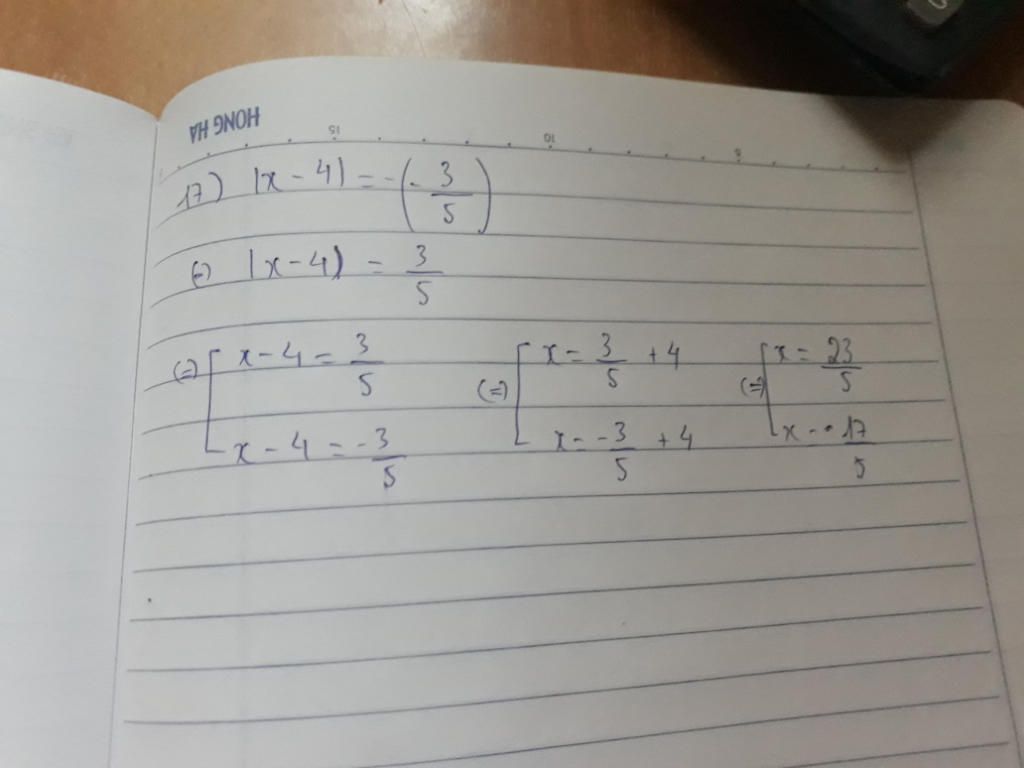 HONG HA
15 10 5
17) |x - 4| = -(-3/5)
(=) |x - 4| = 3/5
(=) [ x - 4 = 3/5 (=) [ x = 3/5 + 4 (=) [ x = 23/5
x - 4 = -3/5 x = -3/5 + 4 x = 17/5